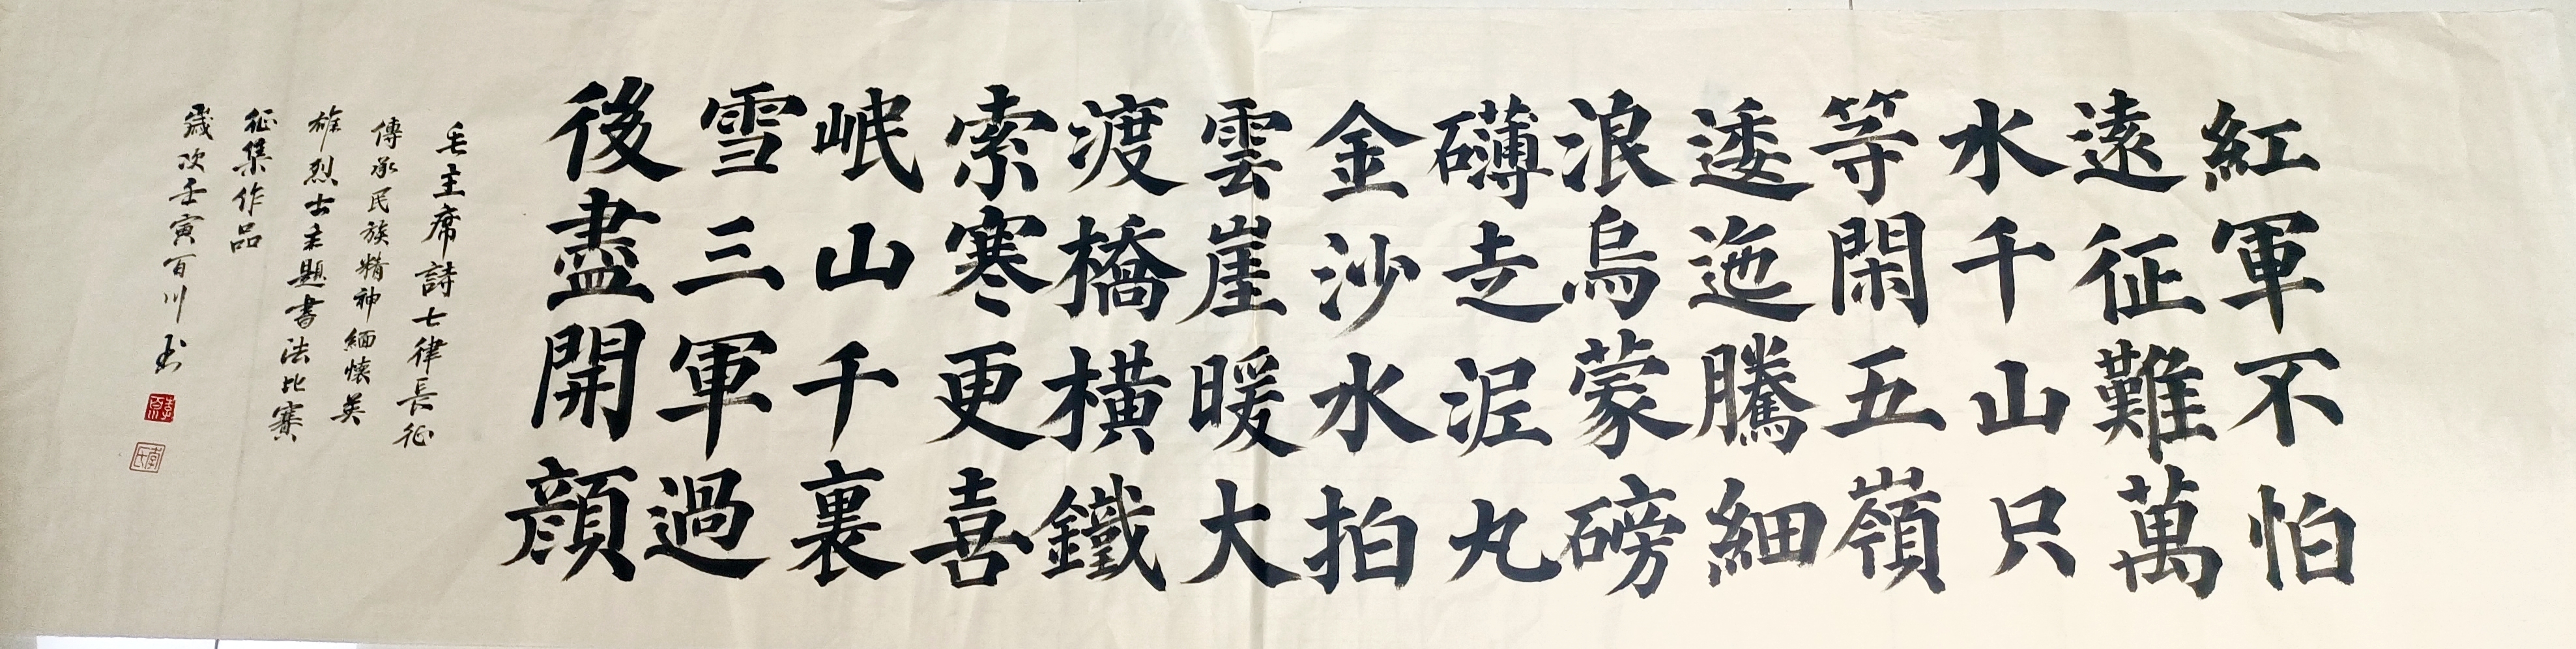 紅軍不怕
遠征難萬
水千山只
等閑五嶺
逶迤騰細
浪烏蒙磅
礴走泥丸
金沙水拍
雲崖暖大
渡橋橫鐵
索寒更喜
岷山千裏
雪三軍過
後盡開顔
毛主席詩七律長征
傳承民族精神緬懷英
雄烈士主題書法比賽
征集作品
歲次壬寅百川书
李氏